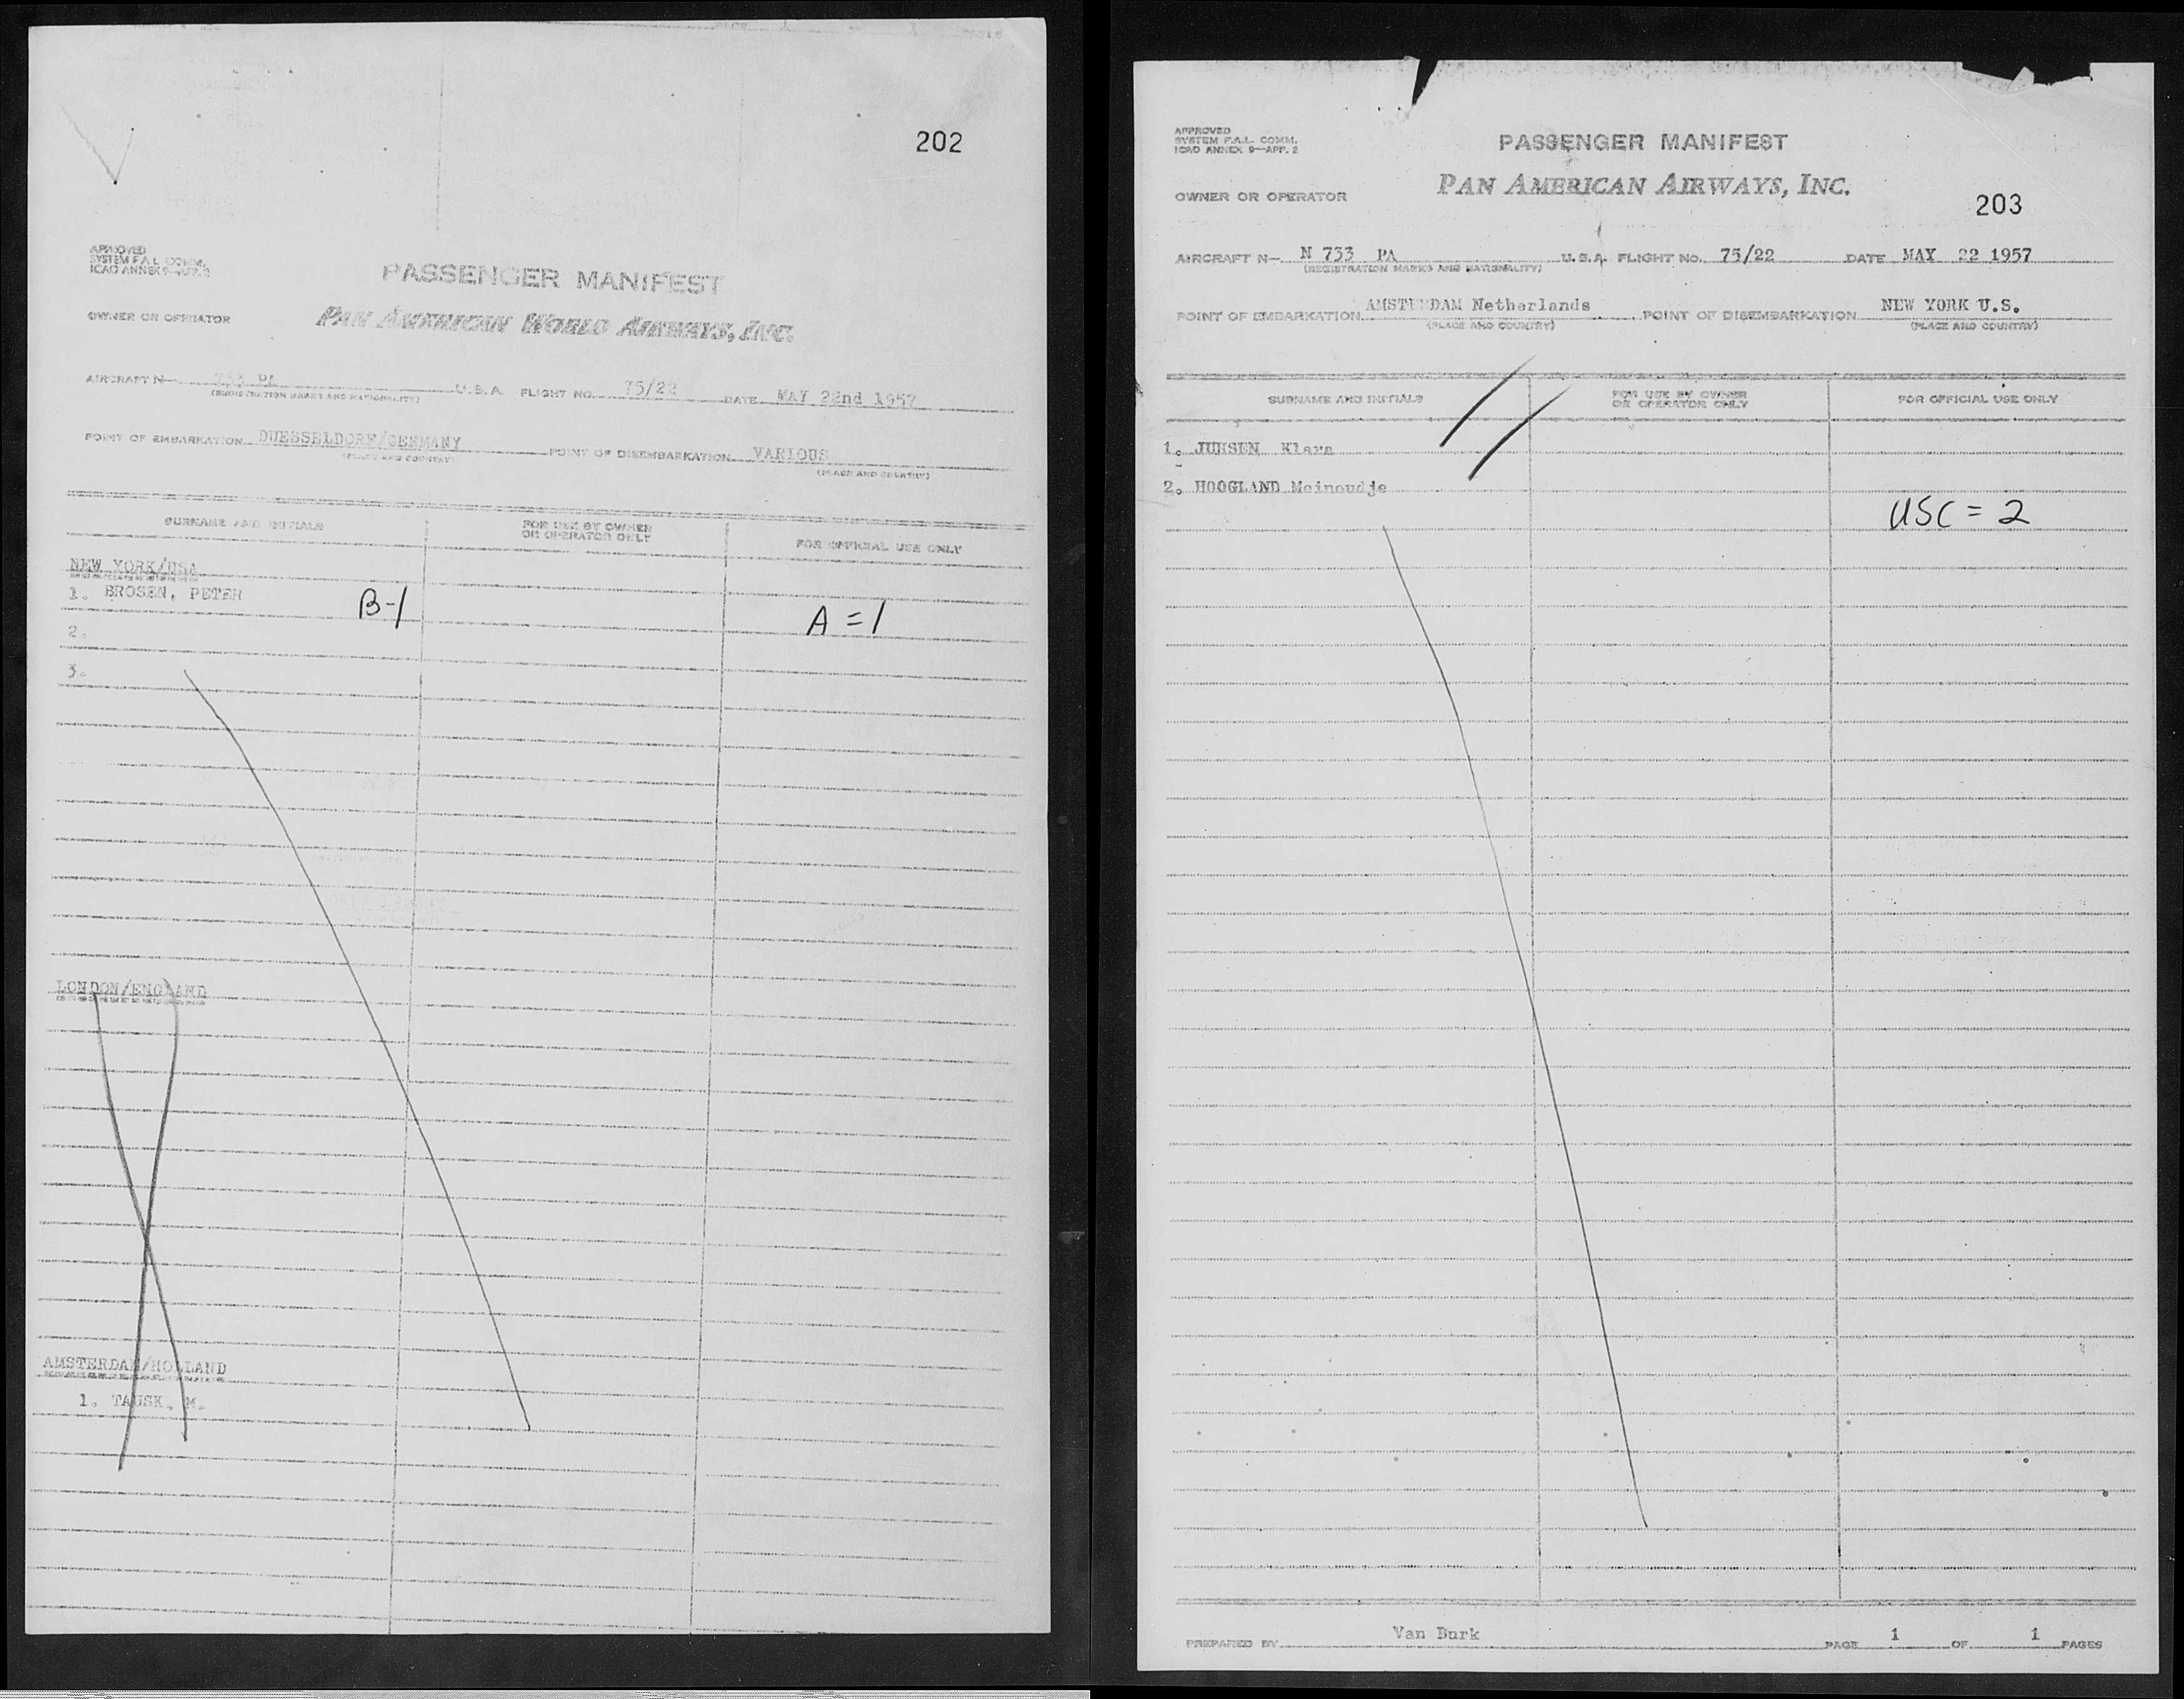 202
APPROVED
SYSTEM F.A.L. COMM.
ICAO ANNEX 9—APP. 2
PASSENGER MANIFEST
OWNER OR OPERATOR PAN AMERICAN WORLD AIRWAYS, INC.
AIRCRAFT N— 733 PA U.S.A. FLIGHT NO. 75/22 DATE MAY 22nd 1957
(REGISTRATION MARKS AND NATIONALITY)
POINT OF EMBARKATION DUESSELDORF/GERMANY POINT OF DISEMBARKATION VARIOUS
(PLACE AND COUNTRY) (PLACE AND COUNTRY)
SURNAME AND INITIALS FOR USE BY OWNER OR OPERATOR ONLY FOR OFFICIAL USE ONLY
NEW YORK/USA
1. BROSEN, PETER B-1 A = 1
2.
3.
LONDON/ENGLAND
AMSTERDAM/HOLLAND
1. TAUSK, M.
APPROVED
SYSTEM F.A.L. COMM.
ICAO ANNEX 9—APP. 2
PASSENGER MANIFEST
PAN AMERICAN AIRWAYS, INC.
OWNER OR OPERATOR
203
AIRCRAFT N— N 733 PA U.S.A. FLIGHT NO. 75/22 DATE MAY 22 1957
(REGISTRATION MARKS AND NATIONALITY)
POINT OF EMBARKATION AMSTERDAM Netherlands POINT OF DISEMBARKATION NEW YORK U.S.
(PLACE AND COUNTRY) (PLACE AND COUNTRY)
SURNAME AND INITIALS FOR USE BY OWNER OR OPERATOR ONLY FOR OFFICIAL USE ONLY
1. JUHSEN Klara
2. HOOGLAND Meinoudje
USC = 2
PREPARED BY Van Durk PAGE 1 OF 1 PAGES